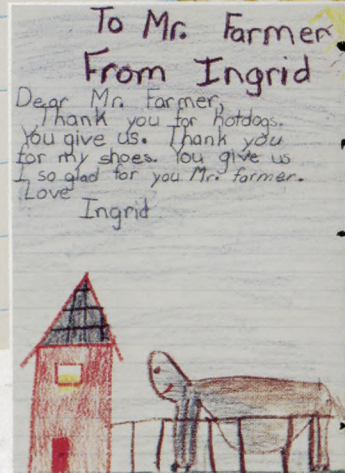 To Mr. Farmer
From Ingrid
Dear Mr. Farmer,
Thank you for hotdogs.
You give us. Thank you
for my shoes. You give us
I so glad for you Mr. farmer.
Love
Ingrid